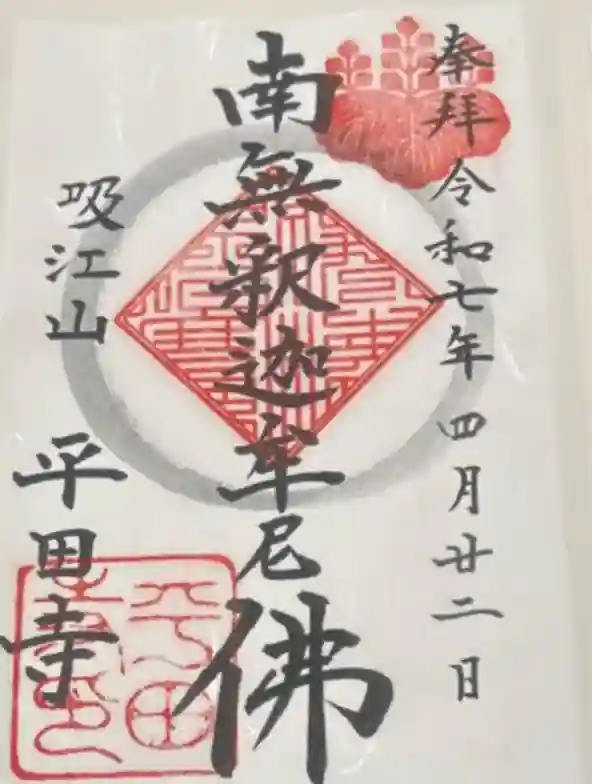 奉拜令和七年四月廿二日
南無釈迦牟尼佛
吸江山 平田寺
平田寺印